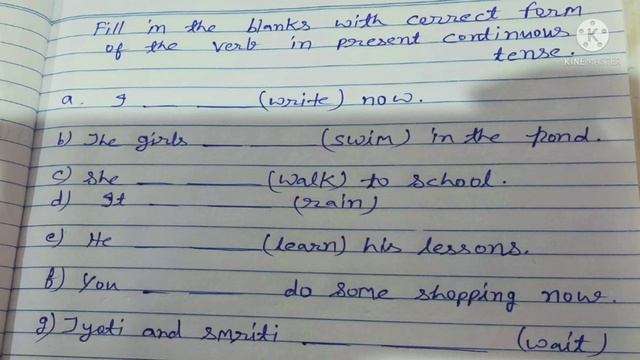 Fill in the blanks with correct form
of the verb in present continuous
tense.
K
KINEMASTER
a. I ___ ___ (write) now.
b) The girls ___ ___ (swim) in the pond.
c) She ___ ___ (walk) to school.
d) It ___ ___ (rain)
e) He ___ ___ (learn) his lessons.
f) You ___ ___ do some shopping now.
g) Jyoti and smriti ___ ___ (wait)